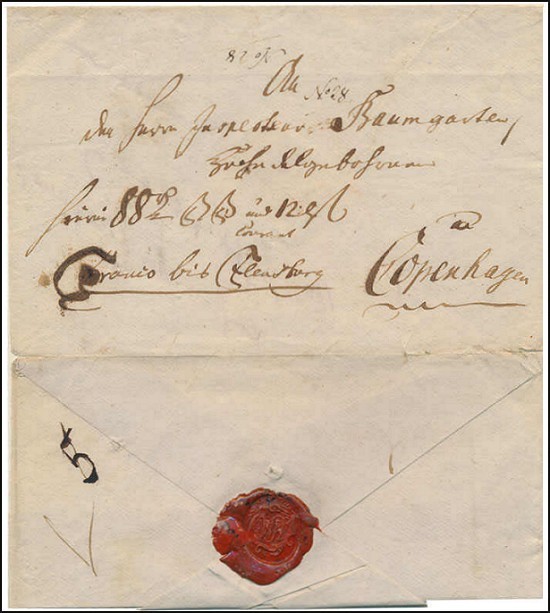 An
No 28.
den Herrn Inspecteur Baumgarten
Hochedelgebohren
hierin 88 und 12 ß
Courant
in
Franco bis Flensburg Copenhagen
5